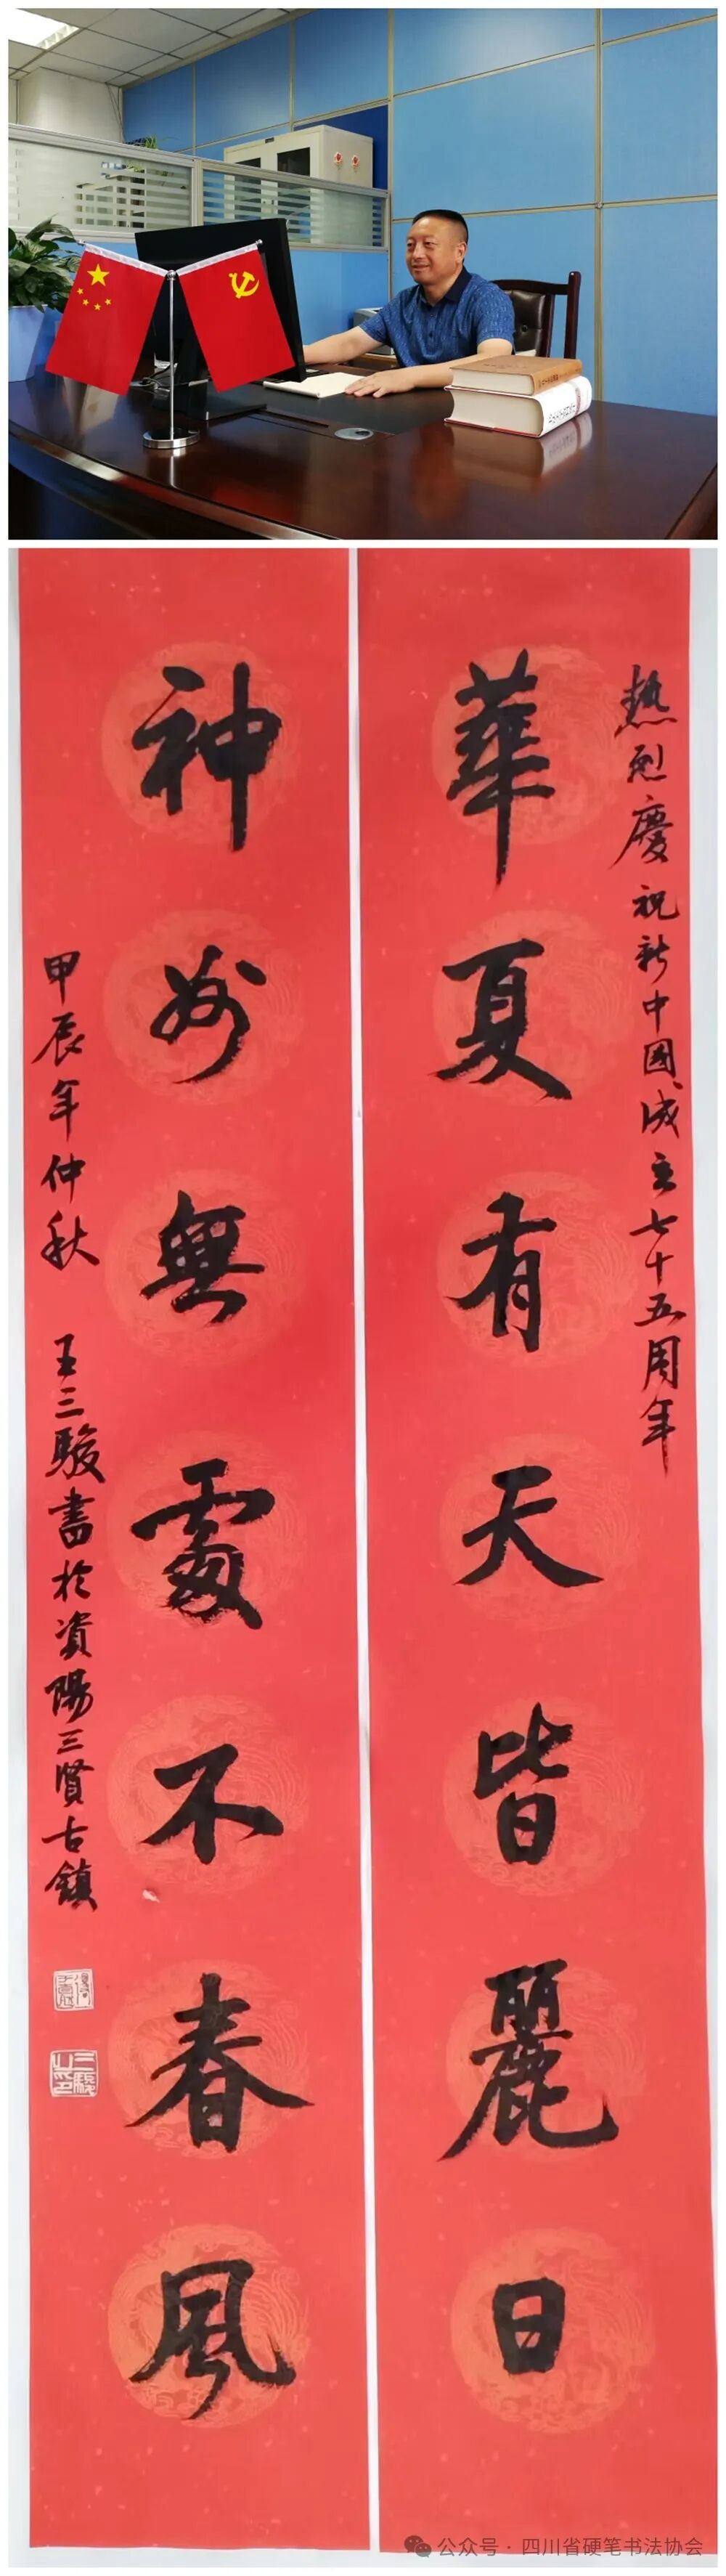 熱烈慶祝新中國成立七十五周年
華夏有天皆麗日
神州無處不春風
甲辰年仲秋 王三駿書於資陽三賢古鎮
公众号 · 四川省硬笔书法协会